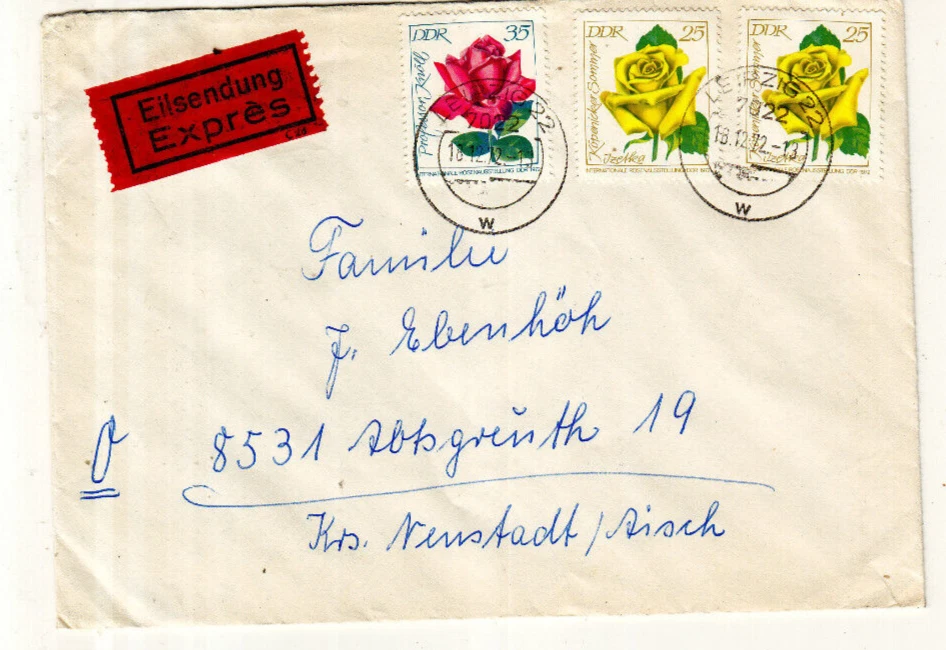 Eilsendung
Exprès
DDR 35
Professor Knöll
INTERNATIONALE ROSENAUSSTELLUNG DDR 1972
DDR 25
Köpenicker Sommer
Izetka
INTERNATIONALE ROSENAUSSTELLUNG DDR 1972
DDR 25
Köpenicker Sommer
Izetka
ROSENAUSSTELLUNG DDR 1972
LEIPZIG 22
7022
18.12.72
W
LEIPZIG 22
7022
18.12.72-13
W
Familie
J. Ebenhöh
8531 Abtsgreuth 19
Krs. Neustadt/Aisch